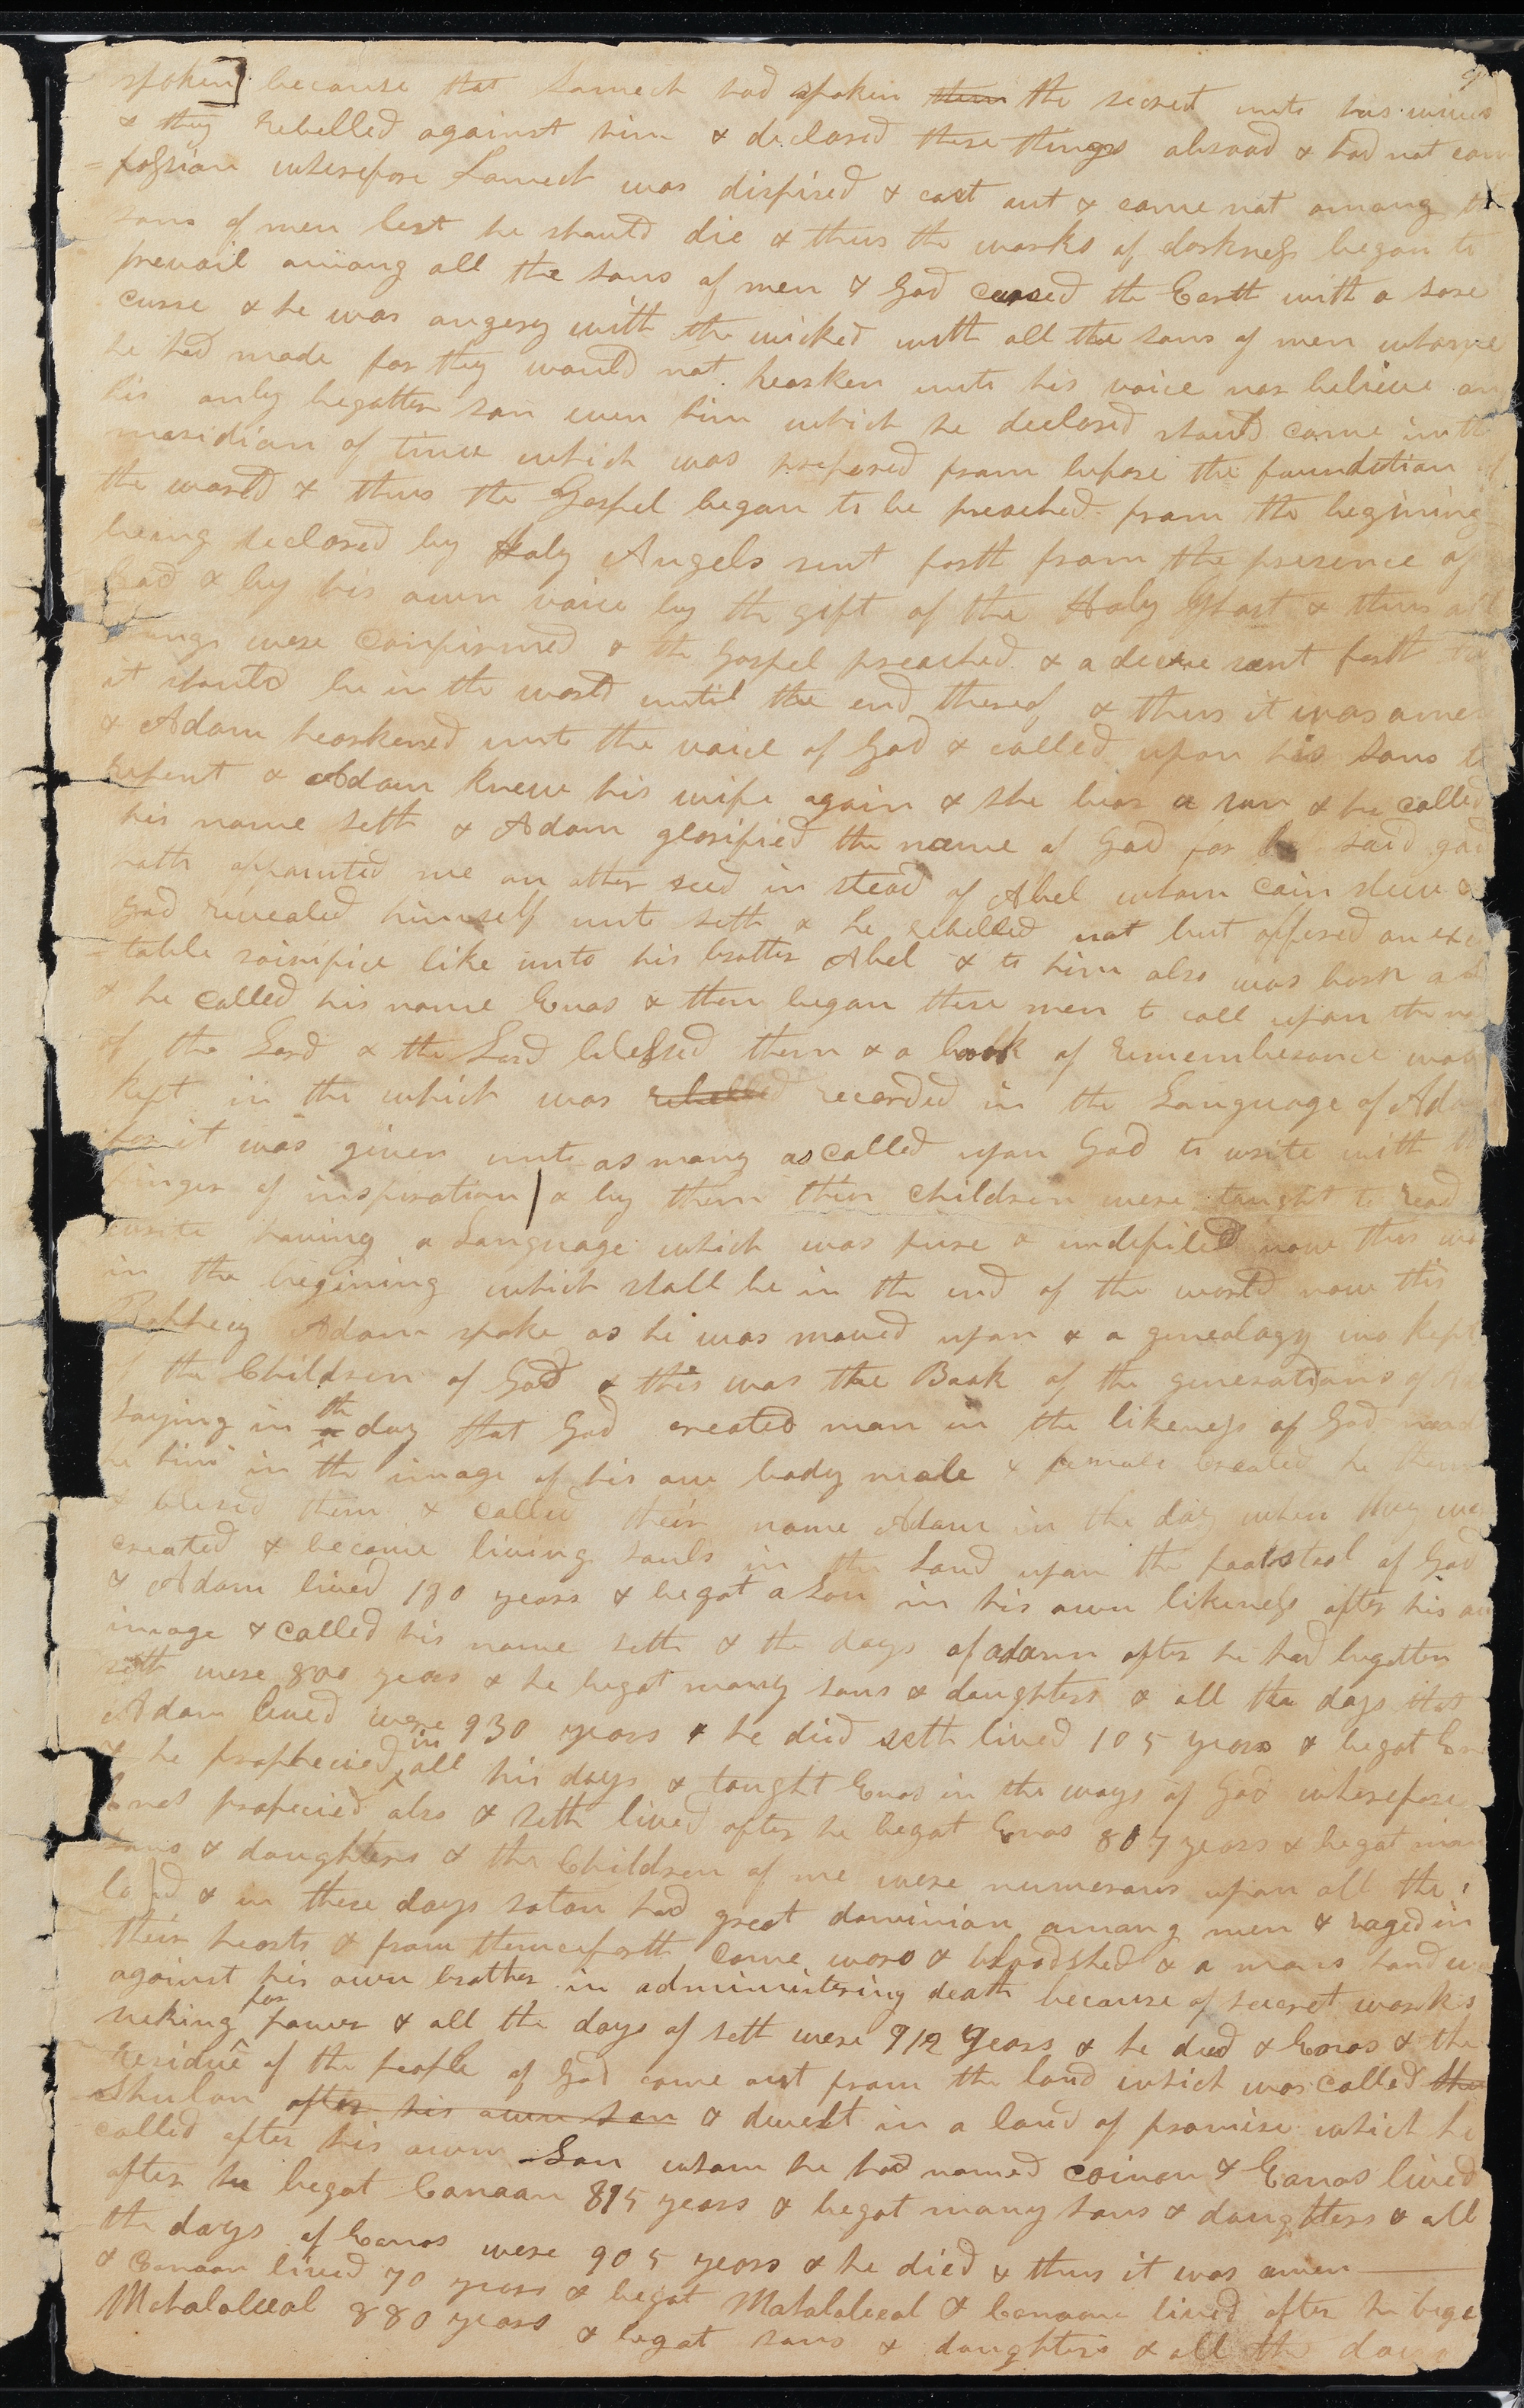 spoken] because that Lamech had spoken them the secret unto his wives
& they rebelled against him & declared these things abroad & had not com
=passion wherefore Lamech was dispised & cast out & came not among the
sons of men lest he should die & thus the works of darkness began to
prevail among all the sons of men & God cursed the Earth with a sore
curse & he was angery with the wicked with all the sons of men whome
he had made for they would not hearken unto his voice nor believe on
his only begotten son even him which he declared should come in the
meridian of time which was prepared from before the foundation of
the world & thus the Gospel began to be preached from the begining
being declared by Holy Angels sent forth from the presence of
God & by his own voice by the gift of the Holy Ghost & thus all
things were confirmed & the Gospel preached & a decree sent forth that
it should be in the world until the end thereof & thus it was amen
& Adam hearkened unto the voice of God & called upon his sons to
repent & Adam knew his wife again & she bear a son & he called
his name seth & Adam glorified the name of God for he said god
hath appointed me an other seed in stead of Abel whom Cain slew &
god revealed himself unto seth & he rebelled not but offered an excep
=table sacrifice like unto his brother Abel & to him also was born a s
& he called his name Enos & then began these men to call upon the na
of the Lord & the Lord blessed them & a book of rememberance was
kept in the which was rebelled recorded in the Language of Adam
for it was given unto as many as called upon God to write with the
finger of inspiration / & by them their children were taught to read
write having a Language which was pure & undefiled now this was
in the begining which shall be in the end of the world now this
Prophecy Adam spake as he was moved upon & a genealogy was kept
of the Children of God & this was the Book of the generations of Ad
saying in a the day that God created man in the likeness of God made
he him in the image of his own body male & female created he them
& blesed them & called their name Adam in the day when they were
created & became living souls in the Land upon the footstool of God
& Adam lived 130 years & begat a Son in his own likeness after his own
image & called his name seth & the days of adam after he had begotten
seth were 800 years & he begat many sons & daughters & all the days that
Adam lived were 930 years & he died seth lived 105 years & begat Enos
& he prophecied in all his days & taught Enos in the ways of God wherefore
Enos profecied also & Seth lived after he begat Enos 807 years & begat many
sons & daughters & the Children of me were numerous upon all the
land & in these days satan had great dominion among men & raged in
their hearts & from thenceforth came wars & bloodshed & a mans hand was
against his own brother in administering death because of secret works
seking for power & all the days of seth were 912 years & he died & Enos & the
residue of the people of God came out from the land which was called the
Shulon after his own son & dwelt in a land of promise which he
called after his own Son whom he had named cainan & Eanos lived
after he begat Canaan 895 years & begat many sons & daughters & all
the days of Eanos were 905 years & he died & thus it was amen
& Canaan lived 70 years & begat Mahalaleeal & Canaan lived after he bega
Mahalaleeal 880 years & begat sons & daughters & all the days